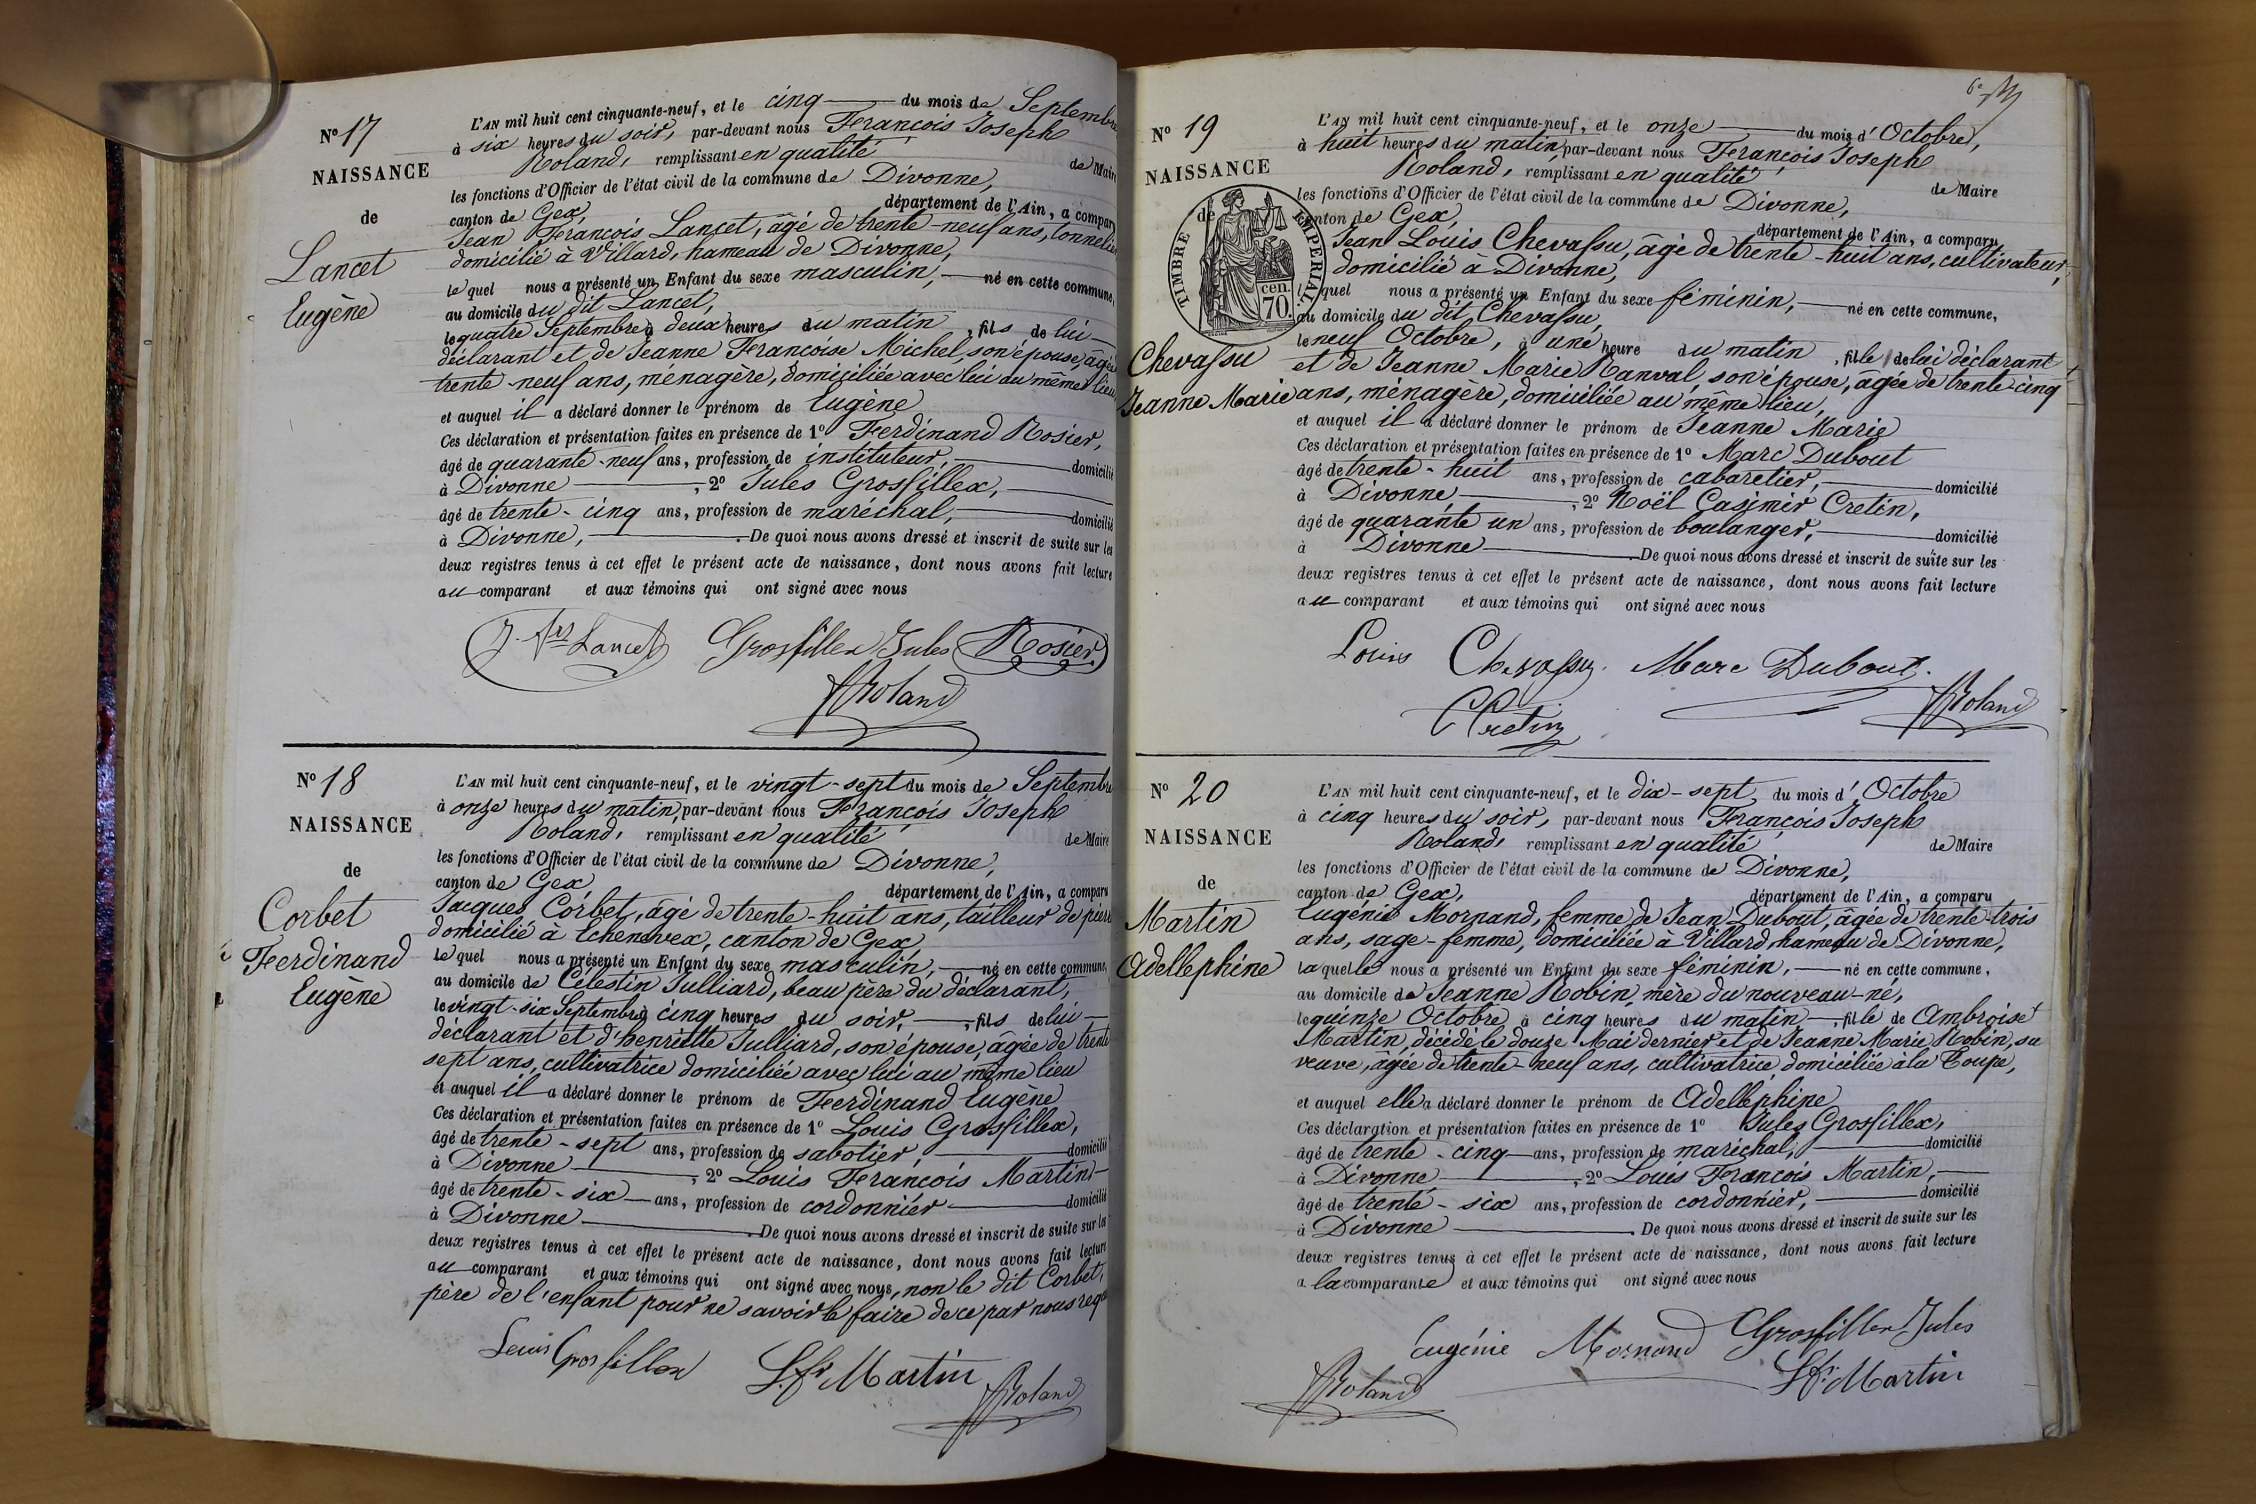 N° 17
NAISSANCE
de
Lancet
Eugène
L'AN mil huit cent cinquante-neuf, et le cinq du mois de Septembre
à six heures du soir, par-devant nous François Joseph
Roland, remplissant en qualité de Maire
les fonctions d'Officier de l'état civil de la commune de Divonne,
canton de Gex, département de l'Ain, a comparu
Jean François Lancet, âgé de trente-neuf ans, tonnelier
domicilié à Villard, hameau de Divonne,
lequel nous a présenté un Enfant du sexe masculin, né en cette commune,
au domicile du dit Lancet,
le quatre Septembre à deux heures du matin, fils de lui
déclarant et de Jeanne Françoise Michel, son épouse, âgée
trente-neuf ans, ménagère, domiciliée avec lui au même lieu
et auquel il a déclaré donner le prénom de Eugène
Ces déclaration et présentation faites en présence de 1° Ferdinand Rosier,
âgé de quarante-neuf ans, profession de instituteur, domicilié
à Divonne, 2° Jules Grosfillex,
âgé de trente-cinq ans, profession de maréchal, domicilié
à Divonne, De quoi nous avons dressé et inscrit de suite sur les
deux registres tenus à cet effet le présent acte de naissance, dont nous avons fait lecture
au comparant et aux témoins qui ont signé avec nous
J. fçs Lancet Grosfillex Jules Rosier
Roland
N° 18
NAISSANCE
de
Corbet
Ferdinand
Eugène
L'AN mil huit cent cinquante-neuf, et le vingt-sept du mois de Septembre
à onze heures du matin, par-devant nous François Joseph
Roland, remplissant en qualité de Maire
les fonctions d'Officier de l'état civil de la commune de Divonne,
canton de Gex, département de l'Ain, a comparu
Jacques Corbet, âgé de trente-huit ans, tailleur de pierre
domicilié à Echenevex, canton de Gex,
lequel nous a présenté un Enfant du sexe masculin, né en cette commune,
au domicile de Célestin Julliard, beau père du déclarant,
le vingt-six Septembre à cinq heures du soir, fils de lui
déclarant et d'henriette Julliard, son épouse, âgée de trente
sept ans, cultivatrice domiciliée avec lui au même lieu
et auquel il a déclaré donner le prénom de Ferdinand Eugène
Ces déclaration et présentation faites en présence de 1° Louis Grosfillex,
âgé de trente-sept ans, profession de sabotier, domicilié
à Divonne, 2° Louis François Martin,
âgé de trente-six ans, profession de cordonnier domicilié
à Divonne. De quoi nous avons dressé et inscrit de suite sur les
deux registres tenus à cet effet le présent acte de naissance, dont nous avons fait lecture
au comparant et aux témoins qui ont signé avec nous, non le dit Corbet,
père de l'enfant pour ne savoir le faire de ce par nous requis
Louis Grosfillex L. fs Martin
Roland
N° 19
NAISSANCE
de
TIMBRE IMPERIAL.
70. cen.
Chevassu
Jeanne Marie
L'AN mil huit cent cinquante-neuf, et le onze du mois d'Octobre,
à huit heures du matin, par-devant nous François Joseph
Roland, remplissant en qualité de Maire
les fonctions d'Officier de l'état civil de la commune de Divonne,
canton de Gex, département de l'Ain, a comparu
Jean Louis Chevassu, âgé de trente-huit ans, cultivateur,
domicilié à Divonne,
lequel nous a présenté un Enfant du sexe féminin, né en cette commune,
au domicile du dit Chevassu,
le neuf Octobre, à une heure du matin, fille de lui déclarant
et de Jeanne Marie Ranval, son épouse, âgée de trente-cinq
ans, ménagère, domiciliée au même lieu,
et auquel il a déclaré donner le prénom de Jeanne Marie
Ces déclaration et présentation faites en présence de 1° Marc Dubout
âgé de trente-huit ans, profession de cabaretier, domicilié
à Divonne, 2° Noël Casimir Cretin,
âgé de quarante un ans, profession de boulanger, domicilié
à Divonne. De quoi nous avons dressé et inscrit de suite sur les
deux registres tenus à cet effet le présent acte de naissance, dont nous avons fait lecture
au comparant et aux témoins qui ont signé avec nous
Louis Chevassu. Marc Dubout.
Cretin Roland
N° 20
NAISSANCE
de
Martin
Adellephine
L'AN mil huit cent cinquante-neuf, et le dix-sept du mois d'Octobre
à cinq heures du soir, par-devant nous François Joseph
Roland, remplissant en qualité de Maire
les fonctions d'Officier de l'état civil de la commune de Divonne,
canton de Gex, département de l'Ain, a comparu
Eugénie Mornand, femme de Jean Dubout, âgée de trente-trois
ans, sage-femme, domiciliée à Villard hameau de Divonne,
laquelle nous a présenté un Enfant du sexe féminin, né en cette commune,
au domicile de Jeanne Robin, mère du nouveau-né,
le quinze Octobre à cinq heures du matin, fille de Ambroise
Martin, décédé le douze Mai dernier et de Jeanne Marie Robin, sa
veuve, âgée de trente-neuf ans, cultivatrice domiciliée à la Coupe,
et auquel elle a déclaré donner le prénom de Adellephine
Ces déclaration et présentation faites en présence de 1° Jules Grosfillex,
âgé de trente-cinq ans, profession de maréchal, domicilié
à Divonne, 2° Louis François Martin,
âgé de trente-six ans, profession de cordonnier, domicilié
à Divonne. De quoi nous avons dressé et inscrit de suite sur les
deux registres tenus à cet effet le présent acte de naissance, dont nous avons fait lecture
a la comparante et aux témoins qui ont signé avec nous
Eugénie Mornand Grosfillex Jules
Roland L. fs. Martin